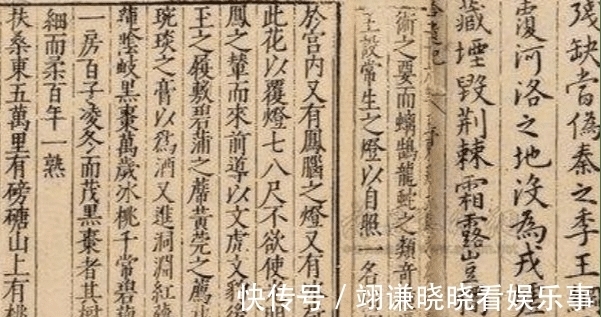 殘缺當偽秦之季王
覆河洛之地沒為戎
藏堙毀荊棘霜露豈
術之要而螭鵠龍蛇之類奇
王設常生之燈以自照一名
於宮内又有鳳腦之燈又有
此花以覆燈七八尺不欲使
鳳之輦而來前導以文虎文豹
王之履敷碧蒲之蓆黃莞之薦
琬琰之膏以為酒又進洞淵紅
陰岐黑棗萬歲冰桃千常碧藕
一房百子凌冬而茂黑棗者其樹
細而柔百年一熟
扶桑東五萬里有磅磄山上有桃
快传号 / 翊谦晓晓看娱乐事